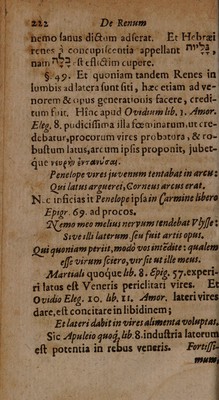 222 De Renum
nemo sanus dictum adserat. Et Hebræi
renes à concupiscentia appellant כליות
nam כלה est esticlim cupere.
§. 49. Et quoniam tandem Renes in
lumbis ad latera sunt siti, hæc etiam ad ve-
norem & opus generationis facere, credi-
tum fuit. Hinc apud Ovidium lib. 1. Amor.
Eleg. 8. pudicissima illa fœminarum, ut cre-
debatur, procorum vires probatura, & ro-
bustum latus, arcum ipsis proponit, jubet-
que
Penelope vires juvenum tentabat in arcu:
Qui latus argueret, Corneus arcus erat.
Nec inficias it Penelope ipsa in Carmine libero
Epigr. 69. ad procos.
Nemo meo melius nervum tendebat Ulysse:
Sive illi laterum, seu fuit artis opus.
Qui quoniam periit, modò vos intēdite: qualem
esse virum sciero, vir sit ut ille meus.
Martiali quoque lib. 8. Epig. 57. experi-
ri latus est Veneris periclitari vires. Et
Ovidio Eleg. 10. lib. 11. Amor. lateri vires
dare, est concitare in libidinem;
Et lateri dabit in vires alimenta voluptas.
Sic Apuleio quoq, lib. 8. industria laterum
est potentia in rebus veneris. Fortissi-
mum,